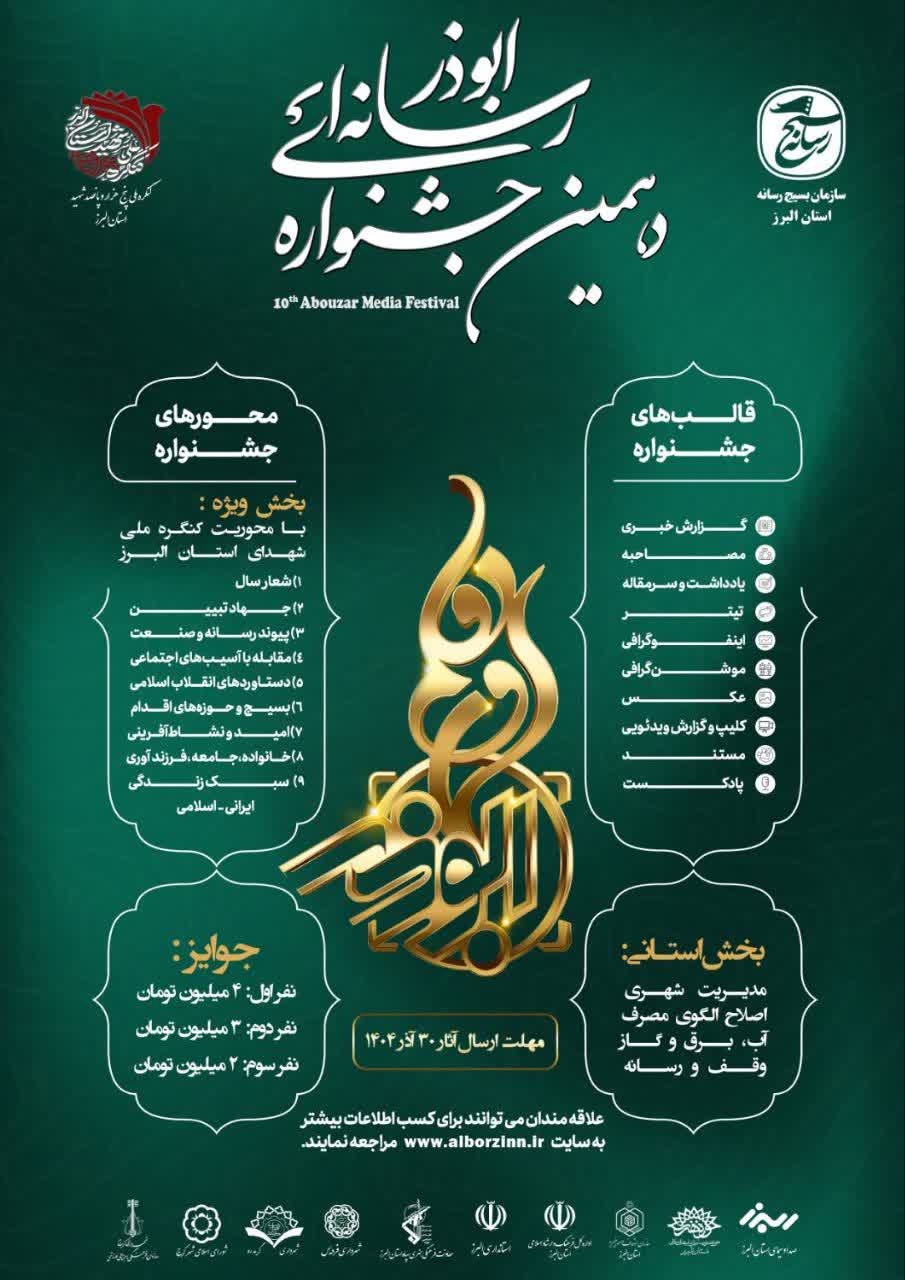 دهمین جشنواره
رسانه‌ای
ابوذر
10th Abouzar Media Festival
رسانه بسیج
سازمان بسیج رسانه
استان البرز
کنگره ملی پنج هزار و پانصد شهید
استان البرز
قالب‌های
جشنواره
گزارش خبری
مصاحبه
یادداشت و سرمقاله
تیتر
اینفوگرافی
موشن‌گرافی
عکس
کلیپ و گزارش ویدئویی
مستند
پادکست
محورهای
جشنواره
بخش ویژه :
با محوریت کنگره ملی
شهدای استان البرز
۱) شعار سال
۲) جهاد تبیین
۳) پیوند رسانه و صنعت
٤) مقابله با آسیب‌های اجتماعی
٥) دستاوردهای انقلاب اسلامی
٦) بسیج و حوزه‌های اقدام
۷) امید و نشاط‌آفرینی
۸) خانواده، جامعه، فرزندآوری
۹) سبک زندگی
ایرانی - اسلامی
بخش استانی:
مدیریت شهری
اصلاح الگوی مصرف
آب، برق و گاز
وقف و رسانه
جوایز :
نفر اول: ۴ میلیون تومان
نفر دوم: ۳ میلیون تومان
نفر سوم: ۲ میلیون تومان
مهلت ارسال آثار ۳۰ آذر ۱۴۰۴
علاقه مندان می توانند برای کسب اطلاعات بیشتر
به سایت www.alborzinn.ir مراجعه نمایند.
صدا و سیمای استان البرز
اداره کل فرهنگ و ارشاد اسلامی
استان البرز
استانداری البرز
معاونت فرهنگی هنری سپاه استان البرز
شهرداری فردیس
شهرداری گرمدره
شورای اسلامی شهر کرج